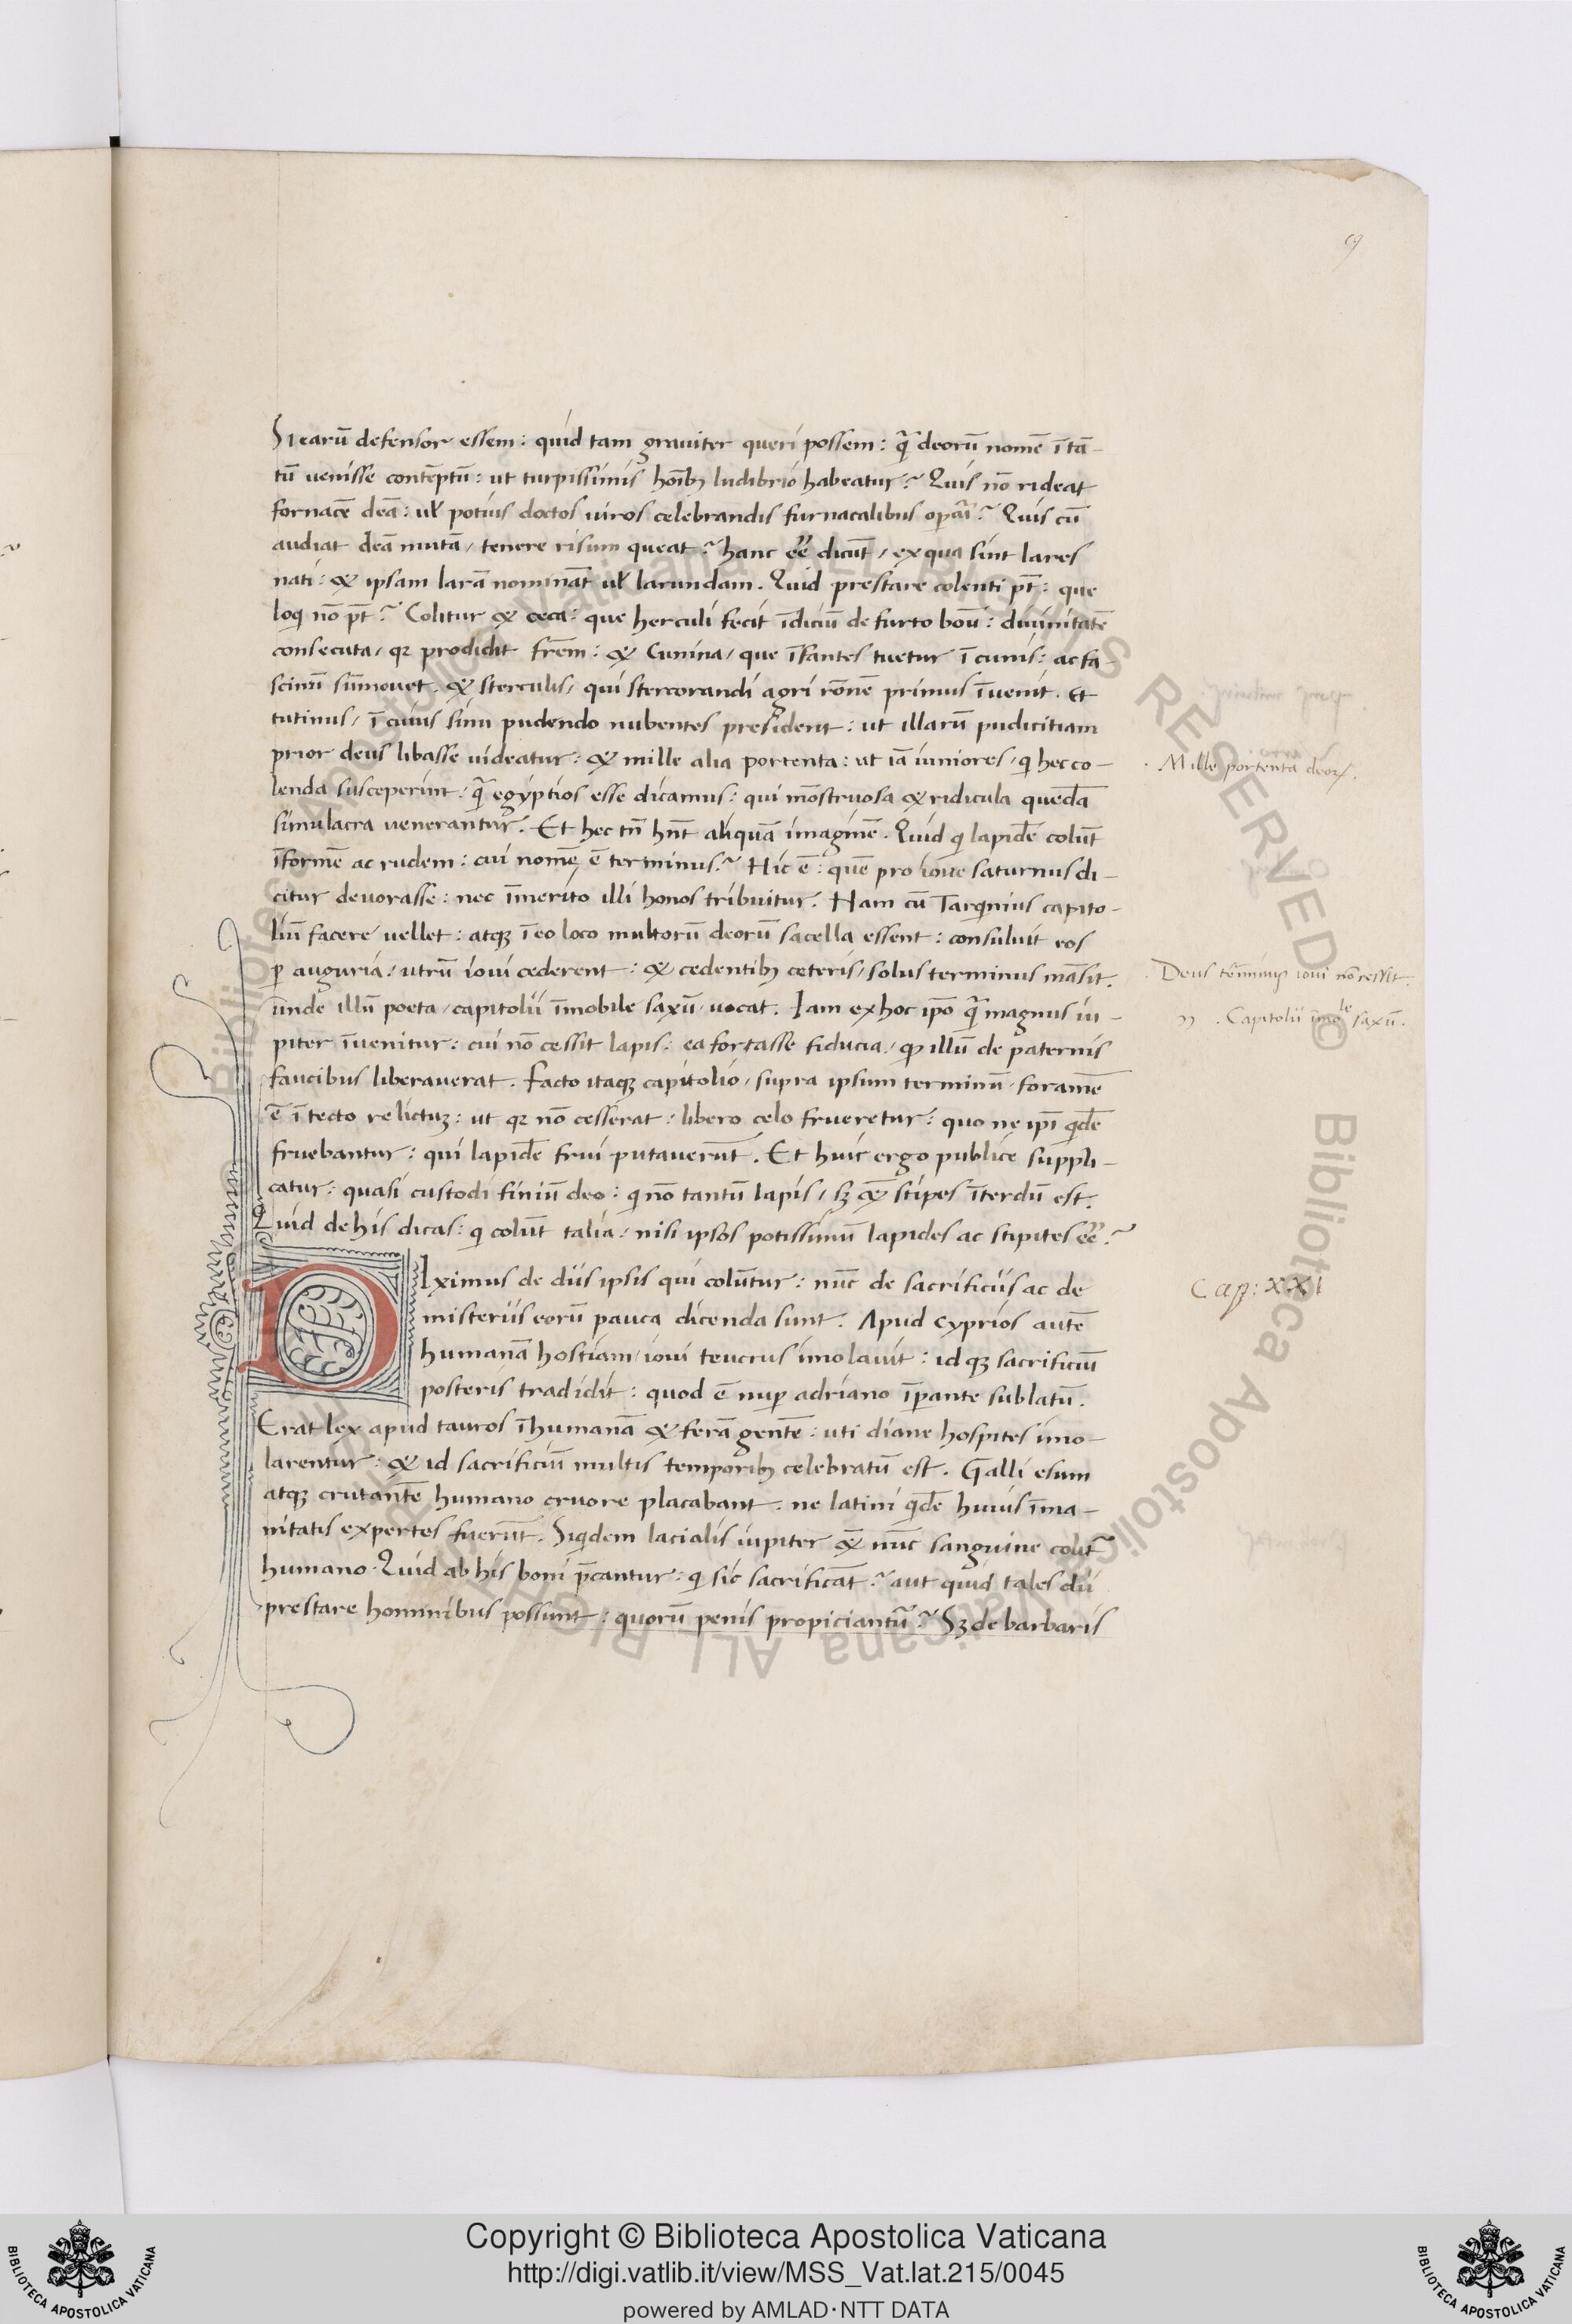 Si earū defensor essem: quid tam grauiter queri possem: q̄ deorū nomē ī tā-
tū uenisse contēptū: ut turpissimis hoībȝ ludibrio habeatur? Quis nō rideat
fornacē deā: uł potius doctos uiros celebrandis furnacalibus operari? Quis cū
audiat deā mutā / tenere risum queat? hanc eē dicūt / ex qua sint lares
nati: & ipsam larā nomināt uł larundam. Quid prestare colenti pt̄: que
loqi nō pt̄? Colitur & ceca: que herculi fecit īdiciū de furto boū: diuinitatē
consecuta / qꝛ prodidit frēm: & Cunina / que īfantes tuetur ī cunis: ac fa-
scinū sūmouet. & sterculis / qui stercorandi agri rōnē primus īuenit. Et
tutinus / ī cuius sinu pudendo nubentes president: ut illarū pudicitiam
prior deus libasse uideatur: & mille alia portenta: ut iā iuniores / qi hec co-
lenda susceperint: q̄ egyptios esse dicamus: qui mōstruosa & ridicula quedā
simulacra uenerantur. Et hec tn̄ hn̄t aliquā imaginē. Quid qi lapidē colūt
īformē ac rudem: cui nomē ē terminus? Hic ē: quē pro ioue saturnus di-
citur deuorasse: nec īmerito illi honos tribuitur. Nam cū Tarqinius capito-
liū facere uellet: atqȝ ī eo loco multorū deorū sacella essent: consuluit eos
ꝑ auguria / utrū ioui cederent: & cedentibȝ ceteris / solus terminus māsit.
unde illū poeta / capitolii īmobile saxū uocat. Iam ex hoc ipō q̄ magnus iu-
piter īuenitur: cui nō cessit lapis: ea fortasse fiducia / ꝙ illū de paternis
faucibus liberauerat. Facto itaqȝ capitolio / supra ipsum terminū foramē
ē ī tecto relictuȝ: ut qꝛ nō cesserat / libero celo frueretur: quo ne ipī qidē
fruebantur: qui lapidē frui putauerūt. Et huic ergo publice suppli-
catur: quasi custodi finiū deo: qi nō tantū lapis / sȝ & stipes īterdū est.
Quid de his dicas: qi colūt talia / nisi ipsos potissimū lapides ac stipites eē?
DIximus de diis ipsis qui colūtur: nūc de sacrificiis ac de
misteriis eorū pauca dicenda sunt. Apud cyprios autē
humanā hostiam ioui teucrus imolauit: idqȝ sacrificiū
posteris tradidit: quod ē nuꝑ adriano īꝑante sublatū.
Erat lex apud tauros īhumanā & ferā gentē: uti diane hospites imo-
larentur: & id sacrificiū multis temporibȝ celebratū est. Galli esum
atqȝ crutantē humano cruore placabant. ne latini qidē huius īma-
nitatis expertes fuerūt. Siqidem lacialis iupiter & nūc sanguine colitr̄
humano. Quid ab his boni p̄cantur: qi sic sacrificāt? aut quid tales dii
prestare hominibus possunt: quorū penis propiciantur̄? Sȝ de barbaris
Mille portenta deorꝝ.
Deus t̄minus ioui nō cessit.
Capitolii īmole saxū.
Cap: XXI
Copyright © Biblioteca Apostolica Vaticana
http://digi.vatlib.it/view/MSS_Vat.lat.215/0045
powered by AMLAD·NTT DATA
BIBLIOTECA APOSTOLICA VATICANA
BIBLIOTECA APOSTOLICA VATICANA